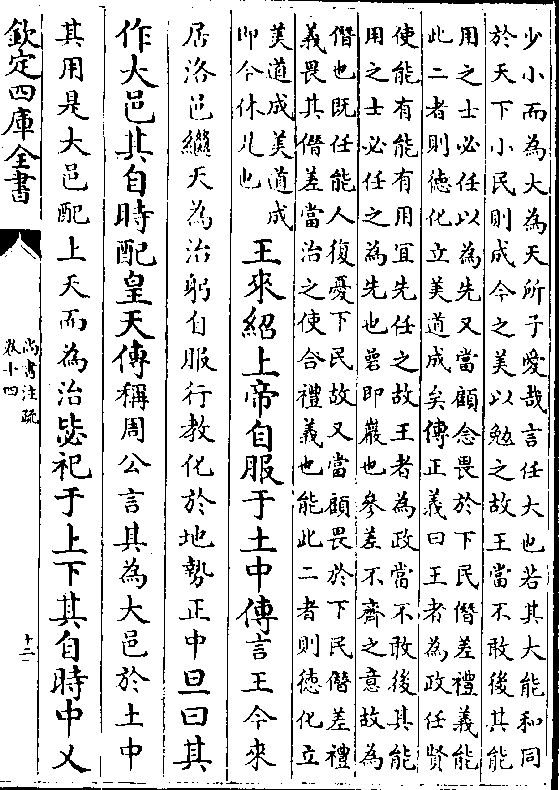 少小而為大為天所子愛哉言任大也若其大能和同
於天下小民則成今之美以勉之故王當不敢後其能
用之士必任以為先又當顧念畏於下民僭差禮義能
此二者則徳化立美道成矣傳正義曰王者為政任賢
使能有能有用宜先任之故王者為政當不敢後其能
用之士必任之為先也碞即巖也參差不齊之意故為
僭也既任能人復憂下民故又當顧畏於下民僭差禮
義畏其僭差當治之使合禮義也能此二者則徳化立
美道成美道成
即今休凡也
王來紹上帝自服于土中傳言王今來
居洛邑繼天為治躬自服行教化於地勢正中旦曰其
作大邑其自時配皇天傳稱周公言其為大邑於土中
其用是大邑配上天而為治毖祀于上下其自時中乂
欽定四庫全書
尚書注疏
卷十四
十二